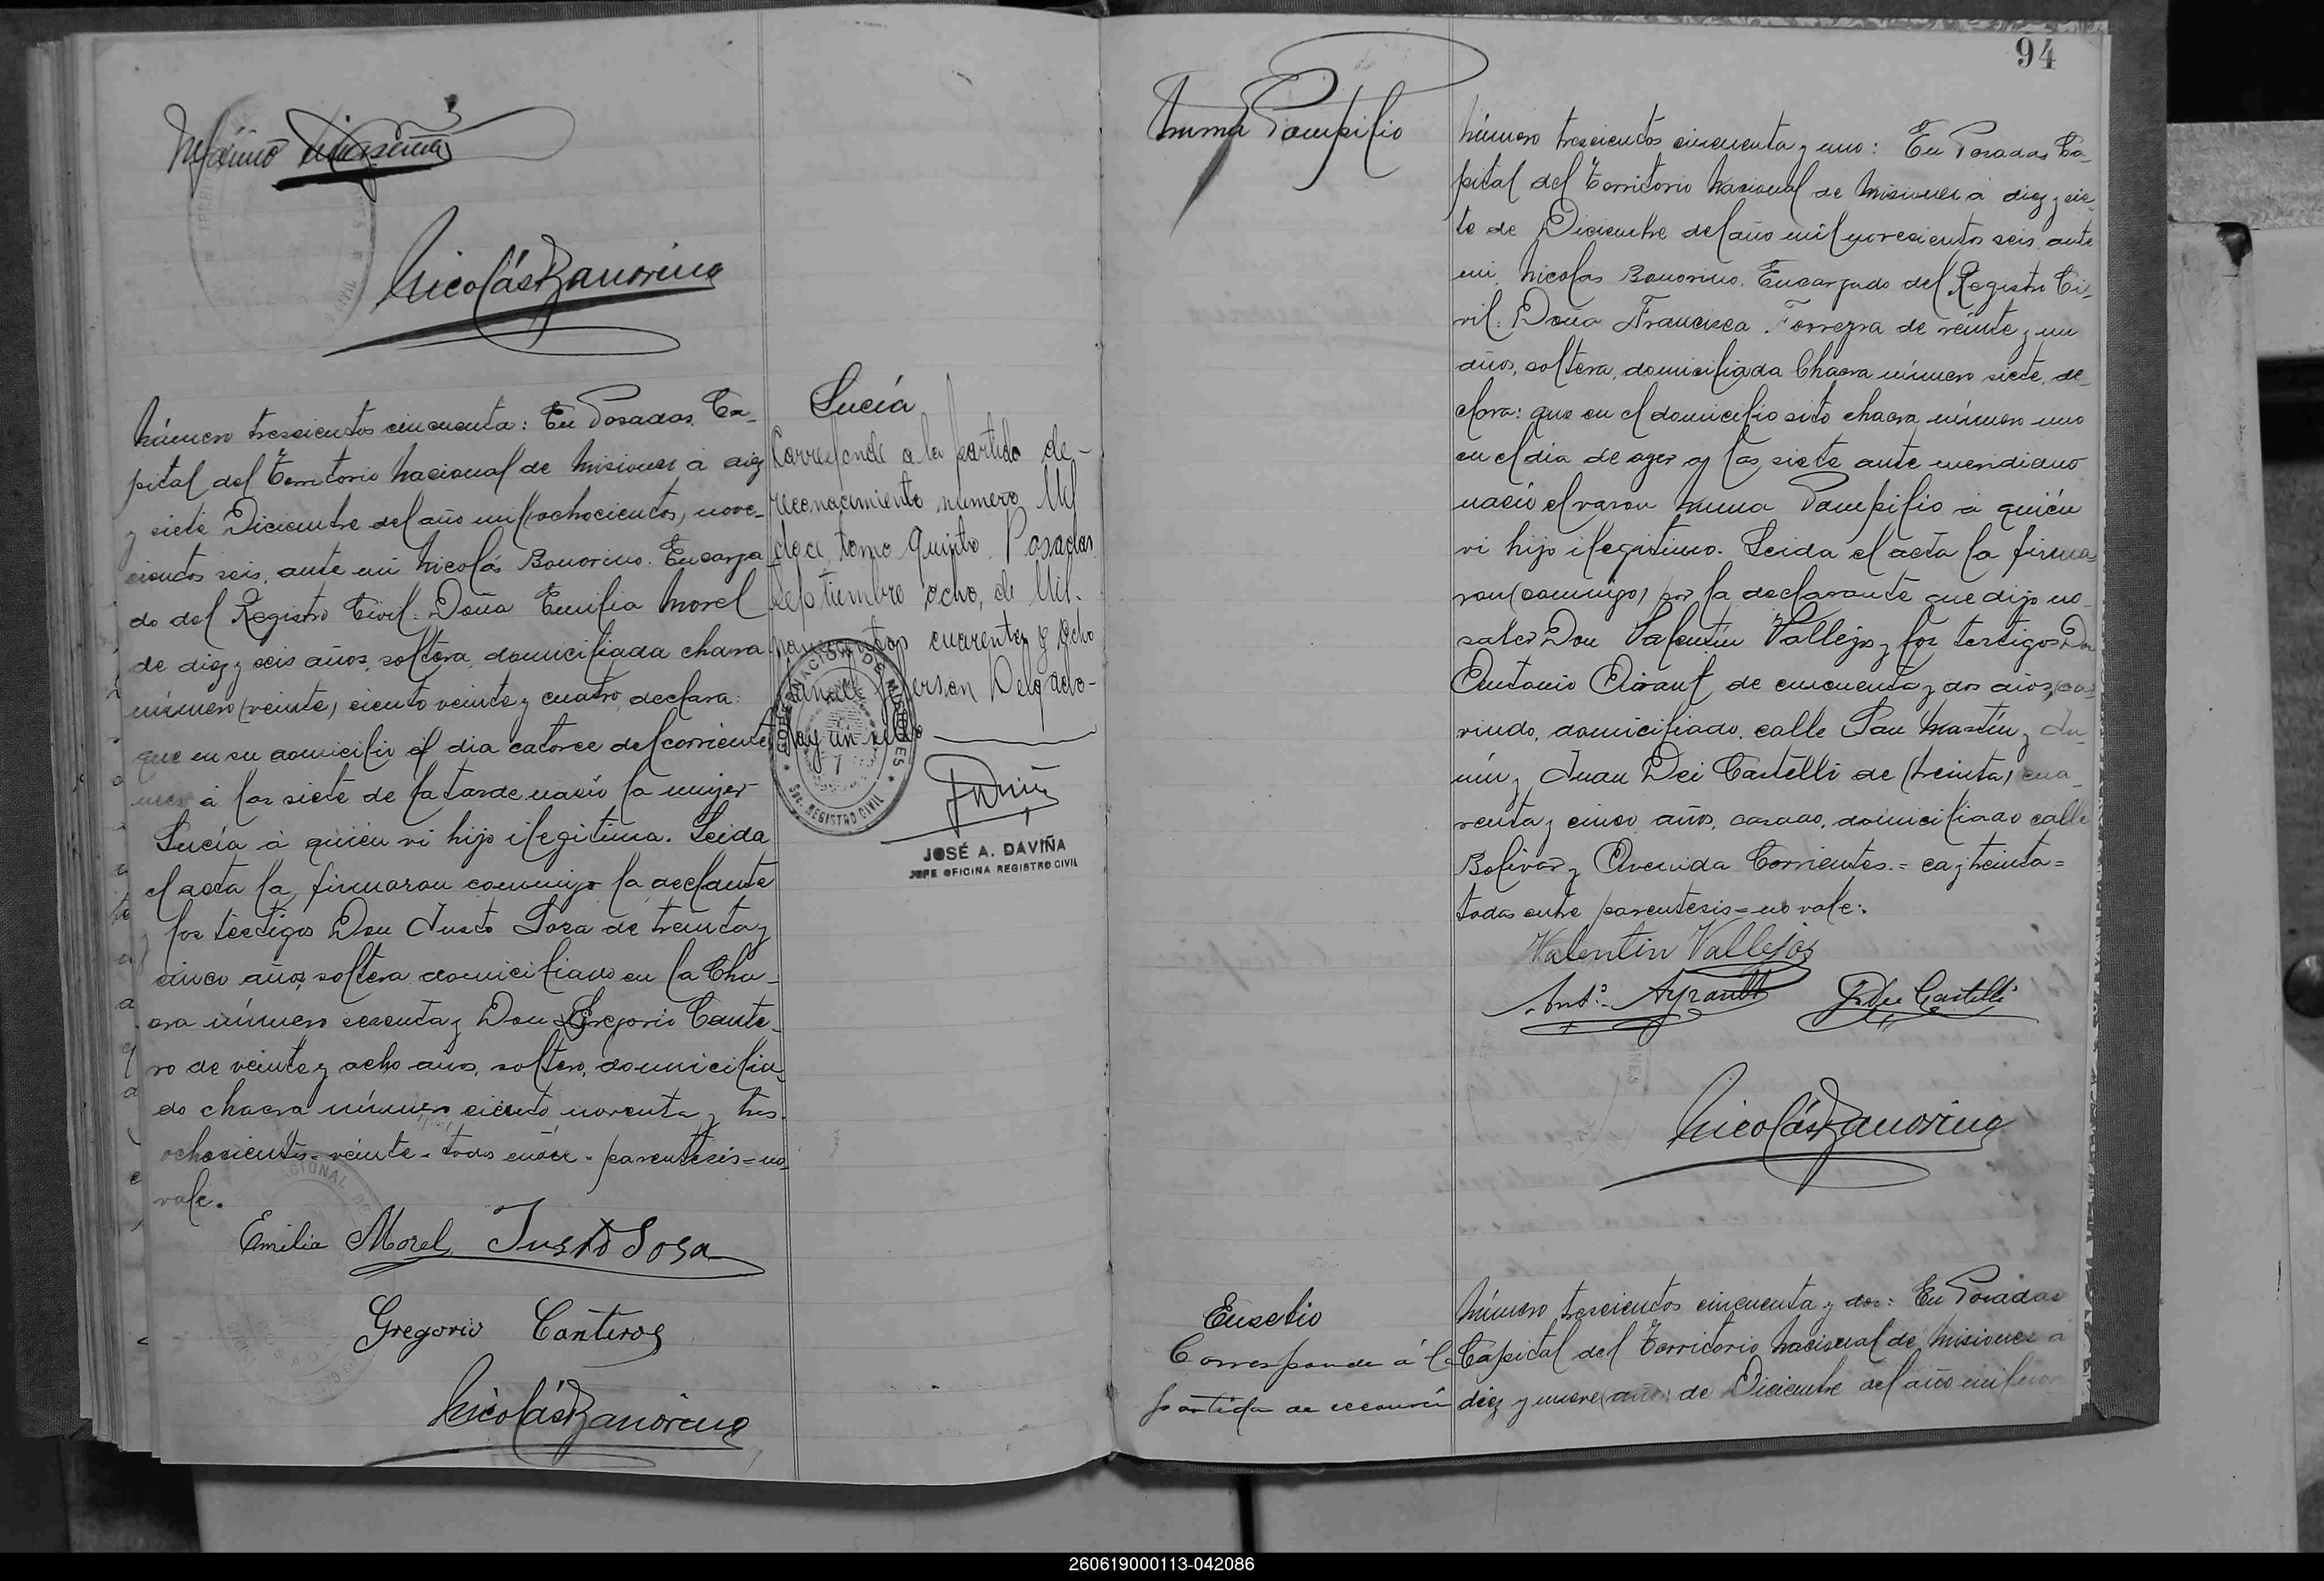 Máximo
Nicolás Bonorino
Número trescientos cincuenta: En Posadas, Ca-
pital del Territorio Nacional de Misiones á diez
y siete Diciembre del año mil (ochocientos) nove-
cientos seis, ante mi Nicolás Bonorino. Encarga
do del Registro Civil: Doña Emilia Morel
de diez y seis años, soltera, domiciliada chacra
número (veinte) ciento veinte y cuatro, declara:
que en su domicilio el dia catorce del corriente
mes á las siete de la tarde nació la mujer
Lucía á quién vi hijo ilegitima. Leida
el acta la firmaron conmigo la declante
y los testigos Don Justo Sosa de treinta y
cinco años, soltera domiciliado en la Cha-
cra número sesenta y Don Gregorio Cante-
ro de veinte y ocho años, soltero, domicilia-
do chacra número ciento noventa y tres.
ochocientos = veinte = todos entre = parentesis = no
vale.
Emilia Morel Justo Sosa
Gregorio Canteros
Nicolás Bonorino
Lucía
Corresponde a la partida de-
reconocimiento número Mil
doce, tomo Quinto. Posadas
Septiembre ocho, de Mil-
novecientos cuarenta y ocho
Delgado-
Hay un sello
GOBERNACION DE MISIONES
REGISTRO CIVIL
JOSÉ A. DAVIÑA
JEFE OFICINA REGISTRO CIVIL
94
Numa Pompilio
Número trescientos cincuenta y uno: En Posadas Ca-
pital del Territorio Nacional de Misiones á diez y sie-
te de Diciembre del año mil novecientos seis, ante
mi, Nicolás Bonorino. Encargado del Registro Ci-
vil: Doña Francisca Ferreyra de veinte y un
años, soltera, domiciliada Chacra número siete, de-
clara: que en el domicilio sito chacra número uno
en el dia de ayer a las siete ante meridiano
nació el varon Numa Pompilio á quién
vi hijo ilegitimo. Leida el acta la firma-
ron (conmigo) por la declarante que dijo no
saber Don Valentín Vallejos y los testigos Don
Antonio Airault de cincuenta y dos años, (ca)
viudo, domiciliado, calle San Martín y Ju-
nín y Juan Dei Castelli de (treinta) cua-
renta y cinco años, casado, domiciliado calle
Bolivar y Avenida Corrientes. = ca y treinta =
todas entre parentesis = no vale:
Valentin Vallejos
Ant.º Ayrault J. Dei Castelli
Nicolás Bonorino
Eusebio
Corresponde á la
partida de reconoci
Número trescientos cincuenta y dos: En Posadas
Capital del Territorio Nacional de Misiones a
diez y nueve (años) de Diciembre del año mil nov
260619000113-042086